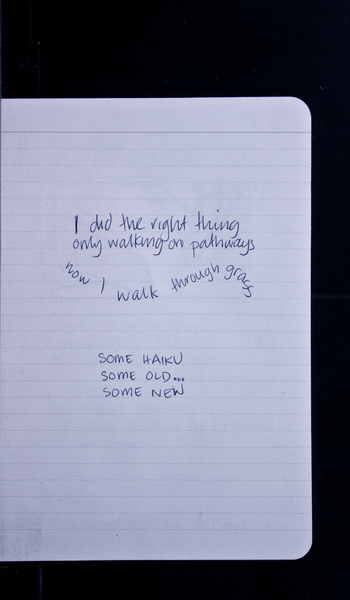 I did the right thing
only walking on pathways
now I walk through grass
SOME HAIKU
SOME OLD...
SOME NEW